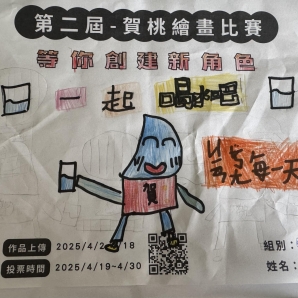 第二屆-賀桃繪畫比賽
等你創建新角色
一起喝水吧
每一天
賀
作品上傳 2025/4/2 18
投票時間 2025/4/19~4/30
組別:
姓名: